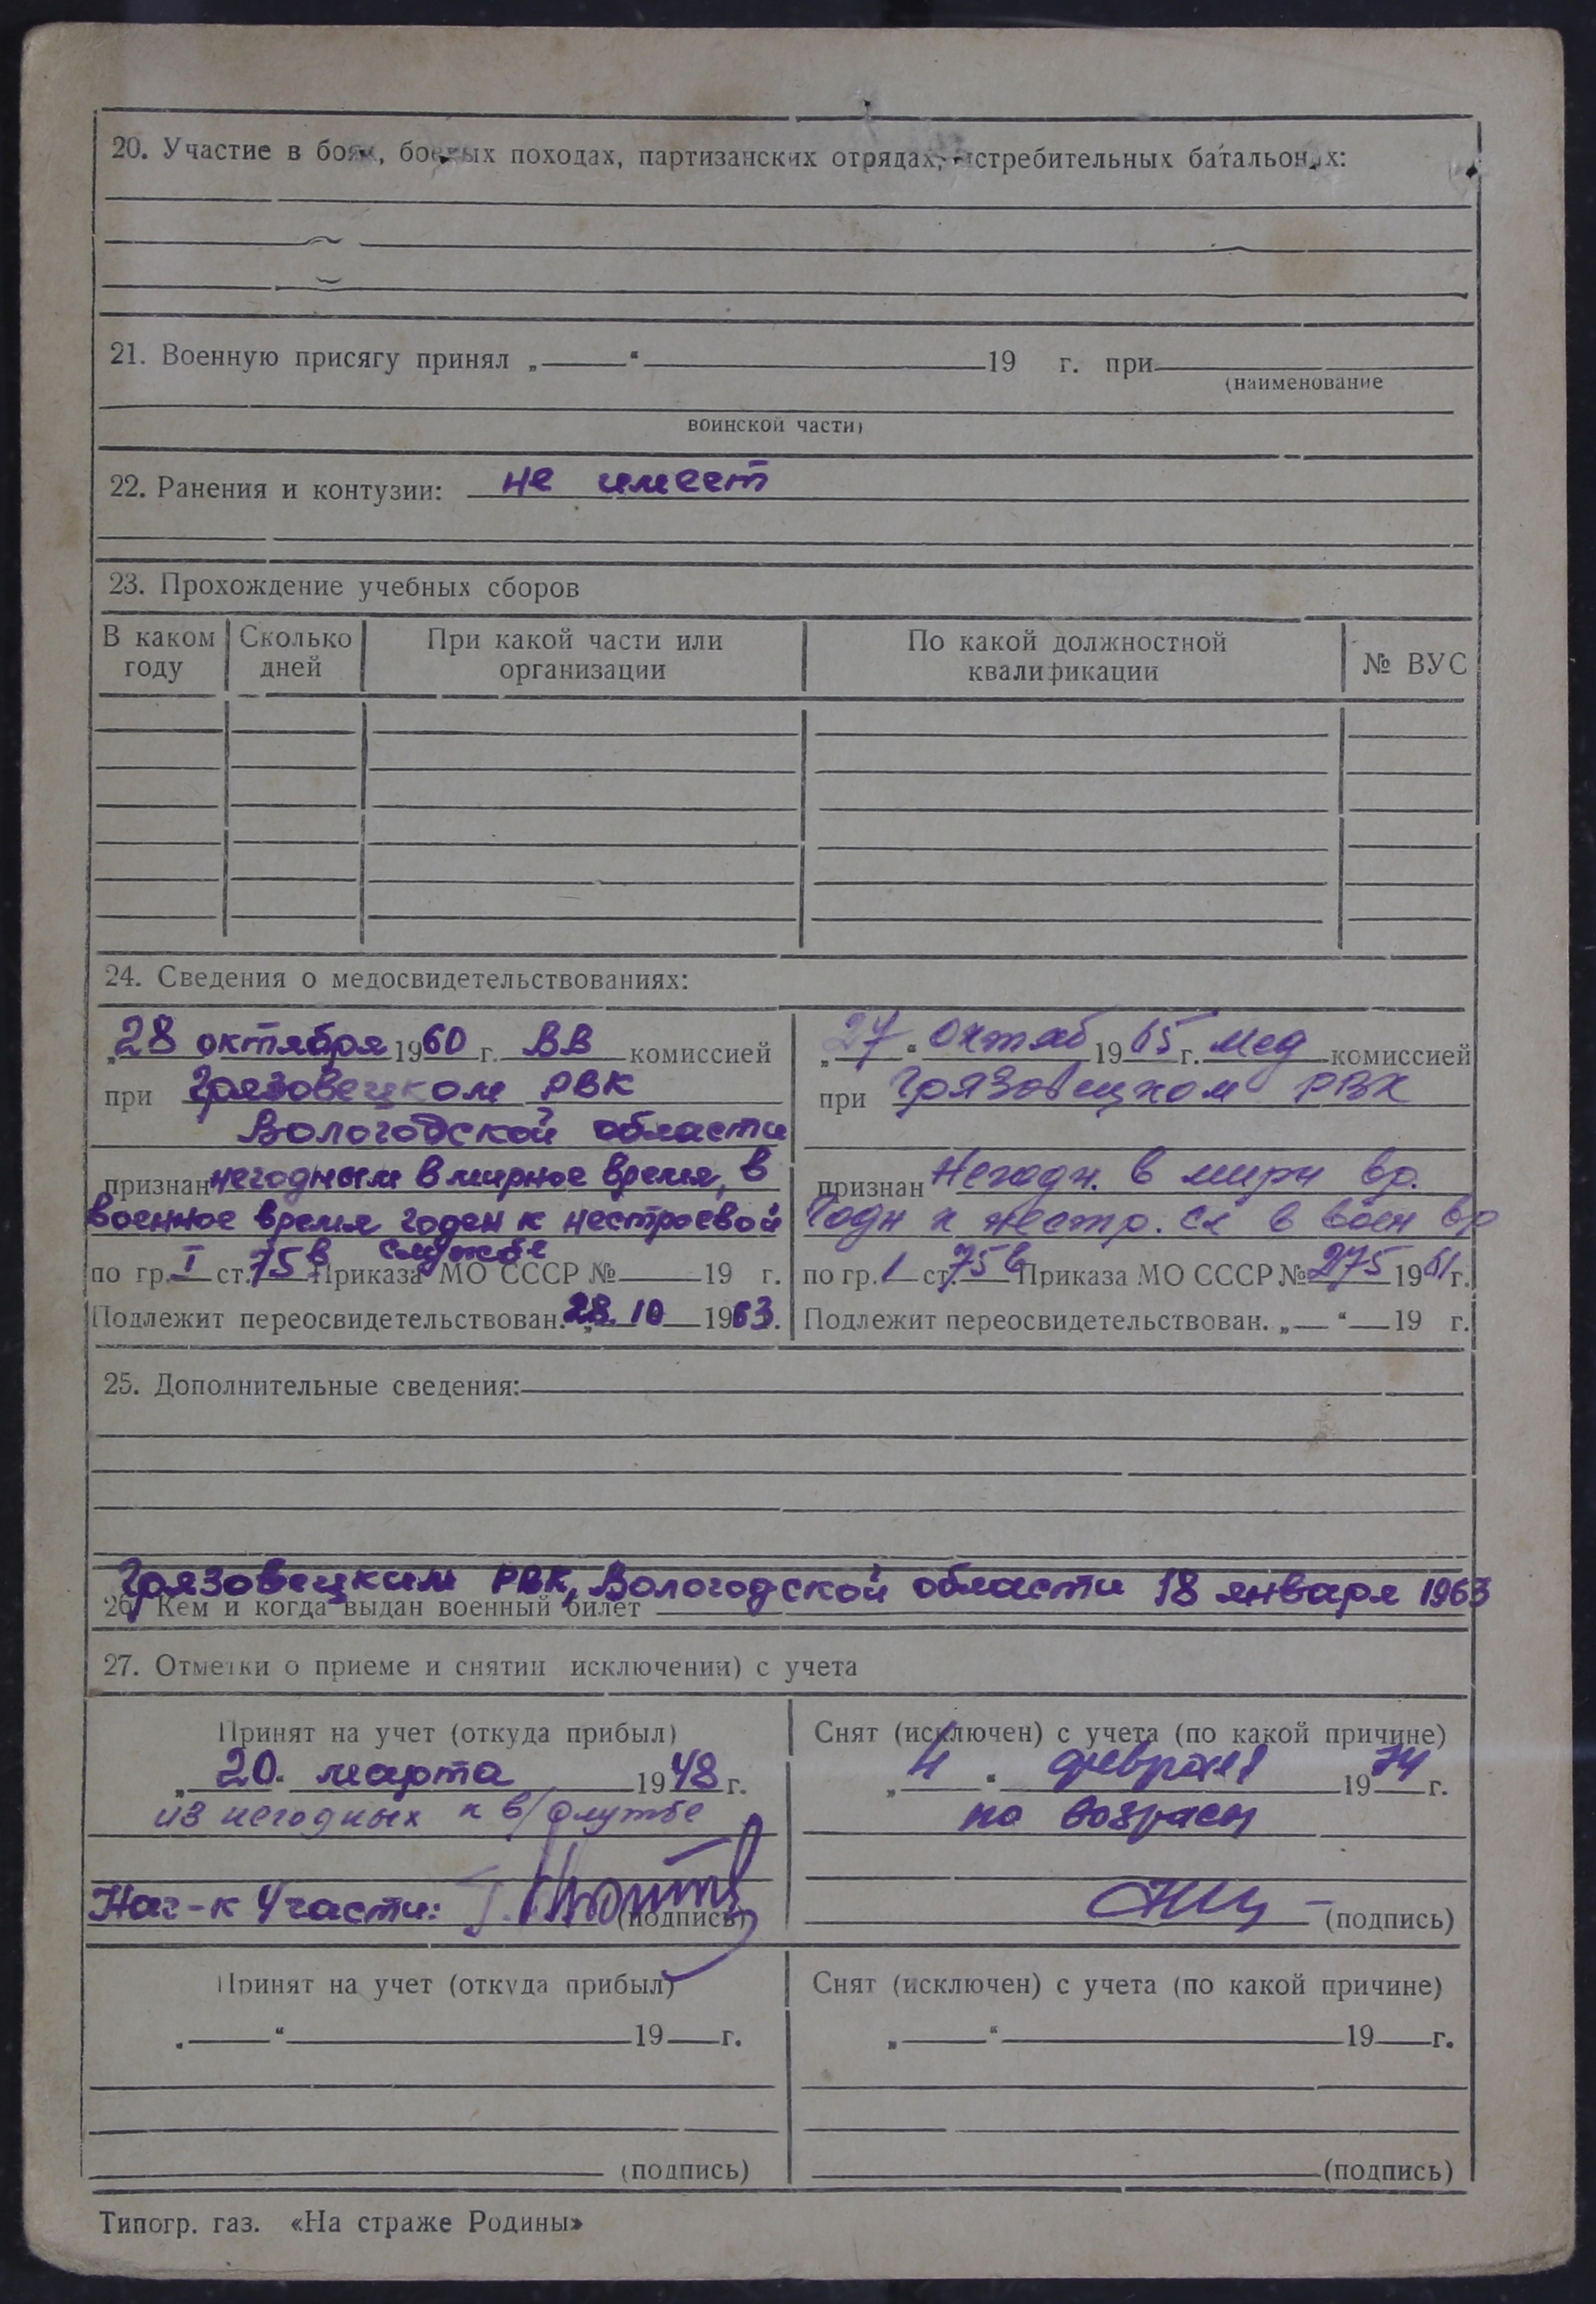 20. Участие в боях, боевых походах, партизанских отрядах, истребительных батальонах:
21. Военную присягу принял „ “ 19 г. при
(наименование
воинской части)
22. Ранения и контузии: не имеет
23. Прохождение учебных сборов
В каком году Сколько дней При какой части или организации По какой должностной квалификации № ВУС
24. Сведения о медосвидетельствованиях:
„28 октября 1960 г. ВВ комиссией
при Грязовецком РВК
Вологодской области
признан негодным в мирное время, в
военное время годен к нестроевой
службе
по гр. I ст. 75в Приказа МО СССР № 19 г.
Подлежит переосвидетельствован. „28.10 1963.
„27“ Октяб 1965 г. мед комиссией
при Грязовецком РВК
признан Негодн. в мирн вр.
Годн к нестр. сл в воен вр
по гр. 1 ст. 75в Приказа МО СССР № 275 1961 г.
Подлежит переосвидетельствован. „ “ 19 г.
25. Дополнительные сведения:
Грязовецким РВК, Вологодской области 18 января 1963
26. Кем и когда выдан военный билет
27. Отметки о приеме и снятии исключении) с учета
Принят на учет (откуда прибыл)
„20. марта 1948 г.
из негодных к в/службе
Нач-к 4 части:
(подпись)
Снят (исключен) с учета (по какой причине)
„4“ февраля 1974 г.
по возрасту
(подпись)
Принят на учет (откуда прибыл)
„ “ 19 г.
(подпись)
Снят (исключен) с учета (по какой причине)
„ “ 19 г.
(подпись)
Типогр. газ. «На страже Родины»